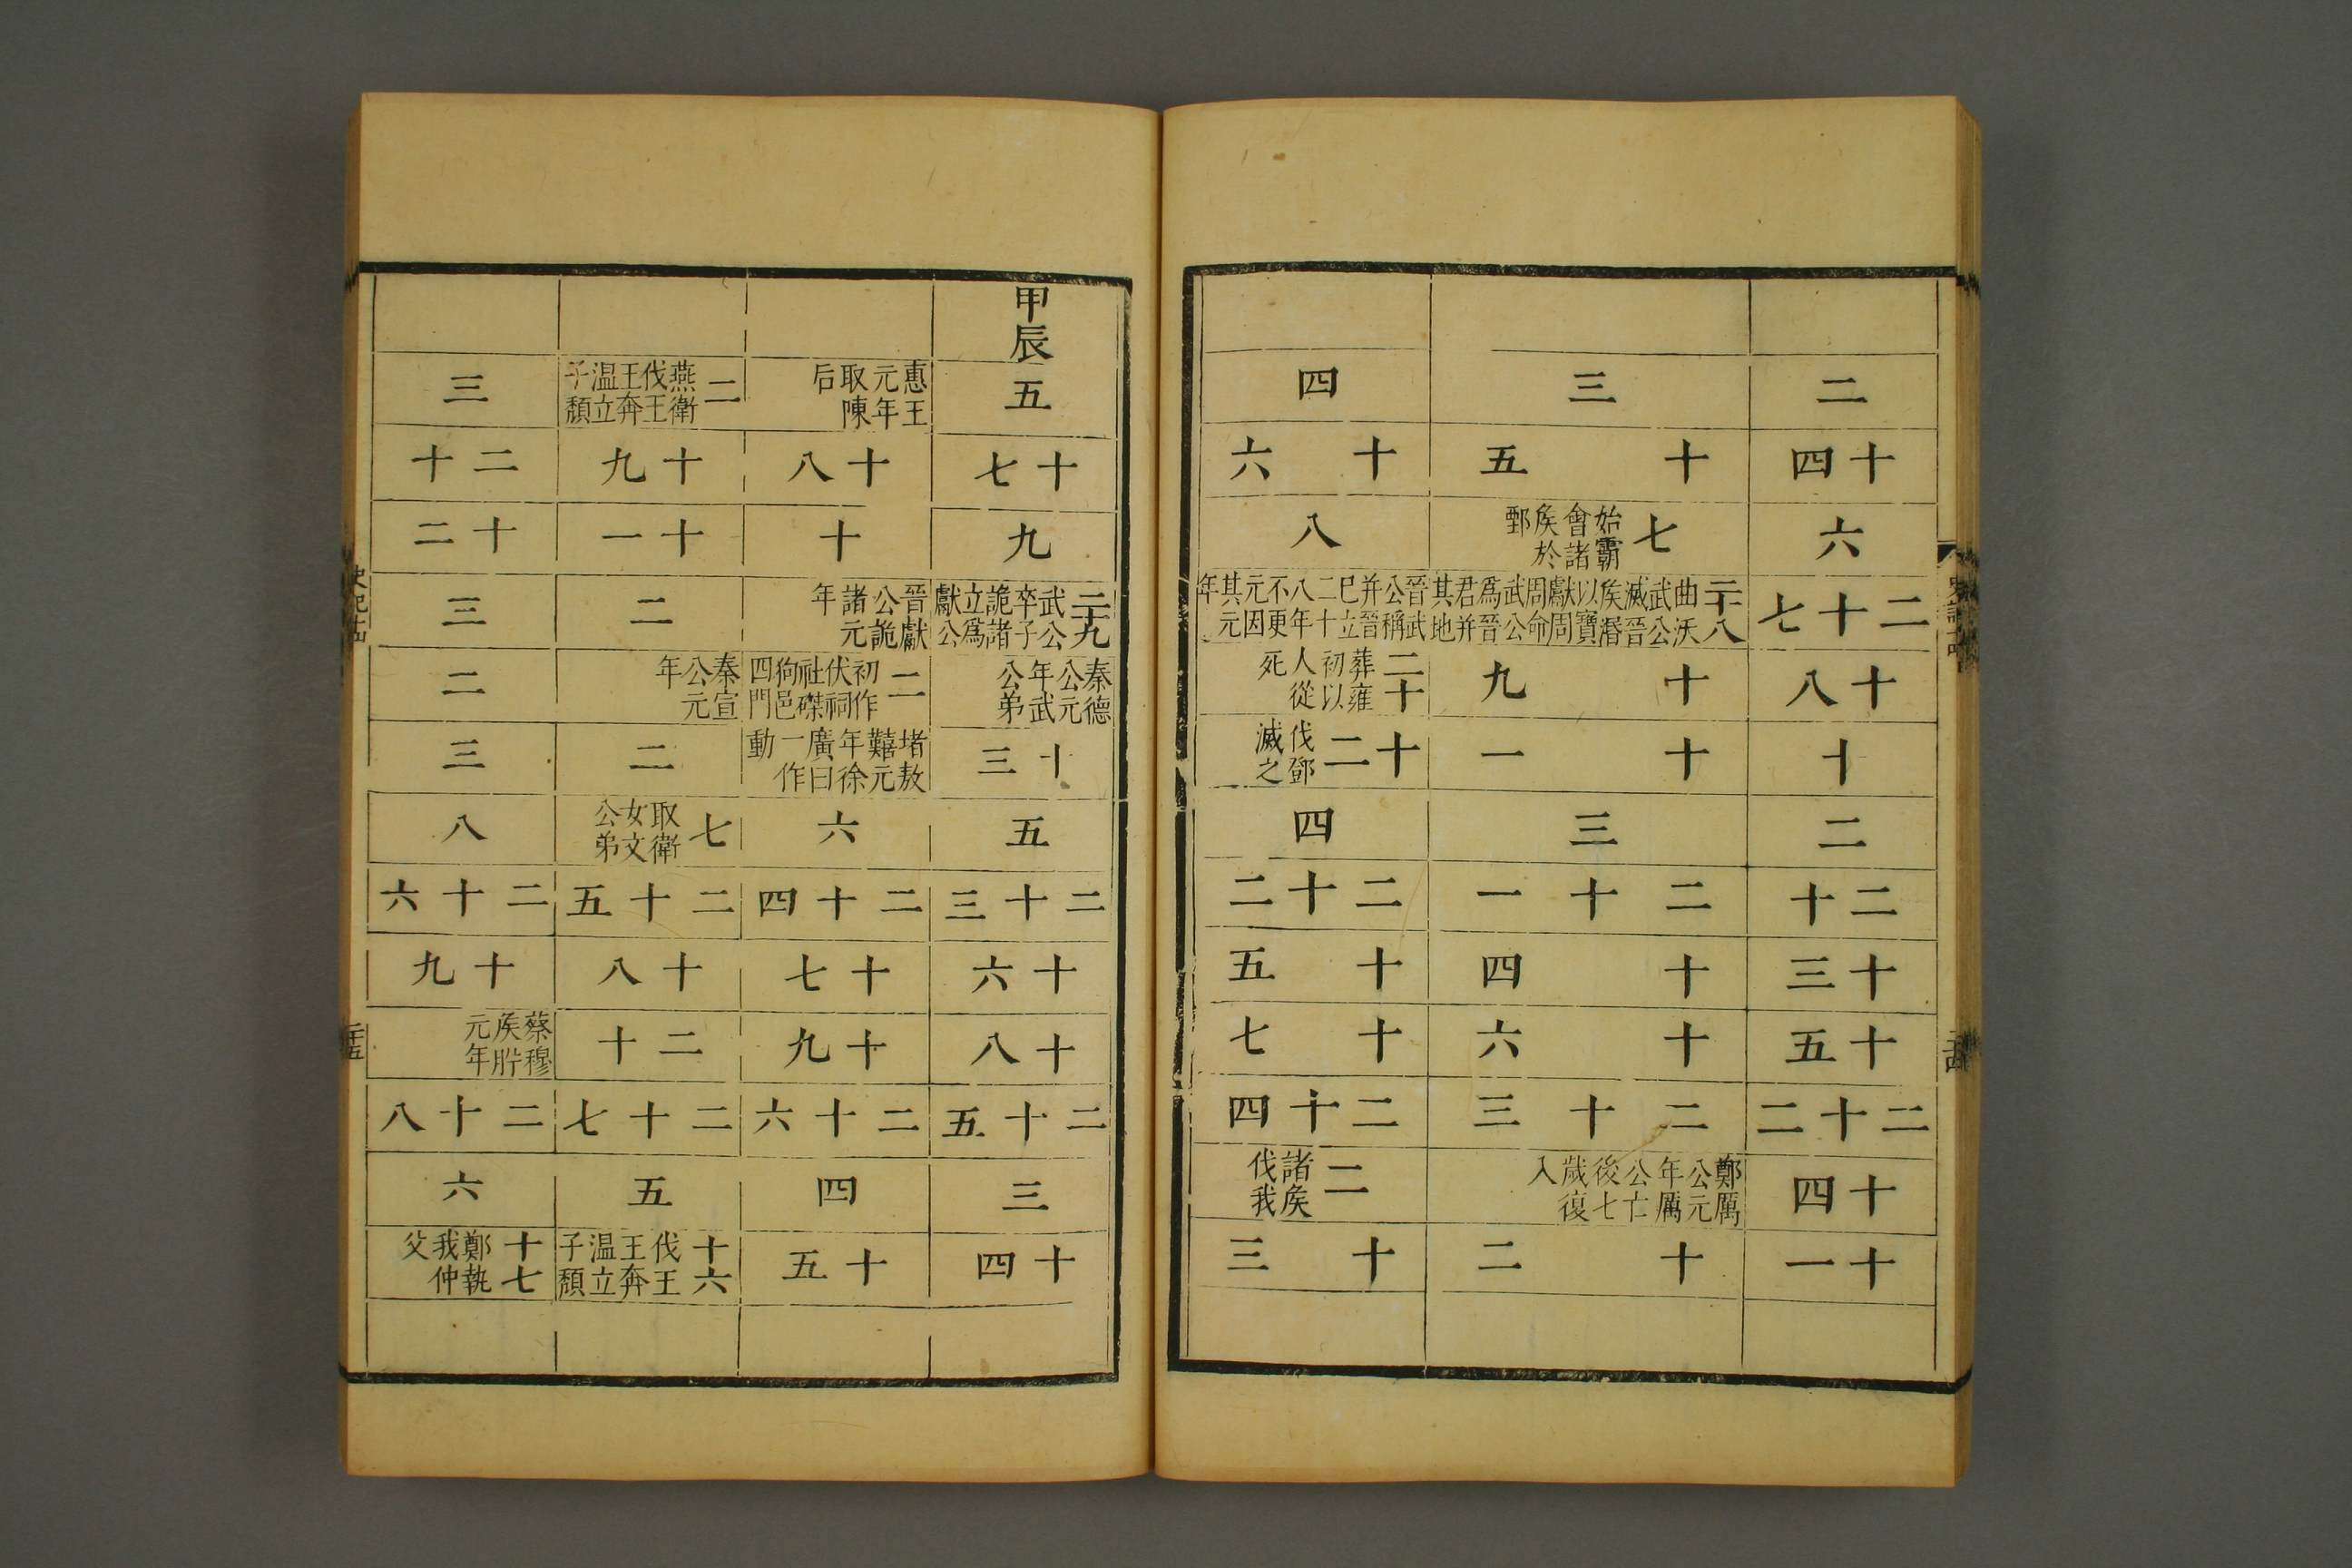 二
十四
六
二十七
十八
十
二
二十
十三
十五
二十二
十四
十一
三
十五
七 始霸會諸侯於鄄
二十八 曲沃武公滅晉侯湣以寶獻周周命武公爲晉君并其地
十九
十一
三
二十一
十四
十六
二十三
鄭厲公元年厲公亡後七歲復入
十二
四
十六
八
晉武公稱并晉巳立二十八年不更元因其元年
二十 葬雍初以人從死
十二 伐鄧滅之
四
二十二
十五
十七
二十四
二 諸侯伐我
十三
甲辰
五
十七
九
二十九 武公卒子詭諸立爲獻公
秦德公元年武公弟
十三
五
二十三
十六
十八
二十五
三
十四
惠王元年取陳后
十八
十
晉獻公詭諸元年
二 初作伏祠社磔狗邑四門
堵敖囏元年徐廣曰一作動
六
二十四
十七
十九
二十六
四
十五
二 燕衛伐王王奔温立子頽
十九
十一
二
秦宣公元年
二
七 取衛女文公弟
二十五
十八
二十
二十七
五
十六 伐王王奔温立子頽
三
二十
十二
三
二
三
八
二十六
十九
蔡穆侯肸元年
二十八
六
十七 鄭執我仲父
史記十四
二十五